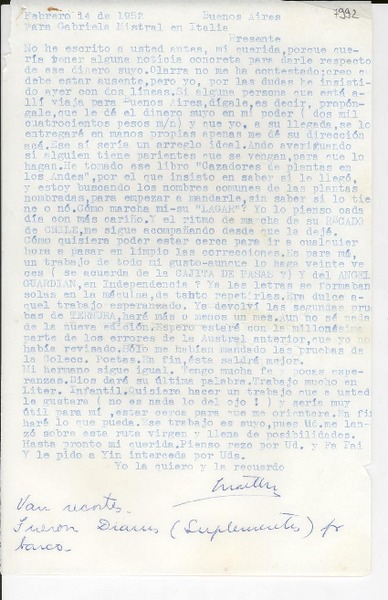 7992
Febrero 14 de 1952 Buenos Aires
Para Gabriela Mistral en Italia
Presente
No he escrito a usted antes, mi querida, porque que-
ría tener alguna noticia concreta para darle respecto
de ese dinero suyo. Olarra no me ha contestado; creo que
debe estar ausente, pero yo, por las dudas he insisti-
do ayer con dos líneas. Si alguna persona que está a-
llí viaja para Buenos Aires, dígale, es decir, propón-
gale, que le dé el dinero suyo en mi poder ( dos mil
cuatrocientos pesos m/n) y que yo, a su llegada, se lo
entregaré en manos propias apenas me dé su dirección
acá. Ese sí sería un arreglo ideal. Ando averiguando
si alguien tiene parientes que se vengan, para que lo
hagan. He tomado ese libro "Cazadores de plantas en
los Andes", por el que insisto en saber si le llegó,
y estoy buscando los nombres comunes de las plantas
nombradas, para empezar a mandarle, sin saber si lo tie
ne o nó. Cómo marcha mi-su "LAGAR"? Yo lo pienso cada
día con más cariño. Y el ritmo de marcha de su RECADO
de CHILE, me sigue acompañando desde que la dejé.
Cómo quisiera poder estar cerca para ir a cualquier
hora a pasar en limpio las correcciones. Es para mí
un trabajo de todo mi gusto-aunque lo haga veinte ve
ces ( se acuerda de la CAJITA DE PASAS ?) Y del ANGEL
GUARDIAN, en Independencia ? Ya las letras se formaban
solas en la máquina, de tanto repetirlas. Era dulce a-
quel trabajo esperanzado. Yo devolví las segundas prue
bas de TERNURA, hará más o menos un mes. Aun no sé nada
de la nueva edición. Espero estará con la millonésima
parte de los errores de la Austral anterior, que yo no
había revisado. Sólo me habían mandado las pruebas de
la Colecc. Poetas. En fin, ésta saldrá mejor.
Mi hermano sigue igual. Tengo mucha fe y pocas espe-
ranzas. Dios dará su última palabra. Trabajo mucho en
Liter. Infantil. Quisiera hacer un trabajo que a usted
le gustara ( no es nada lo del ojo !) y sería muy
útil para mí , estar cerca para que me orientara. En fin
haré lo que pueda. Ese trabajo es suyo, pues Ud. me lan-
zó sobre esta ruta virgen y llena de posibilidades.
Hasta pronto mi querida. Pienso rezo por Ud. y Pa Pai
Y le pido a Yin interceda por Uds.
Yo la quiero y la recuerdo
Van recortes.
Fueron Diarios (Suplementos) por
barco.